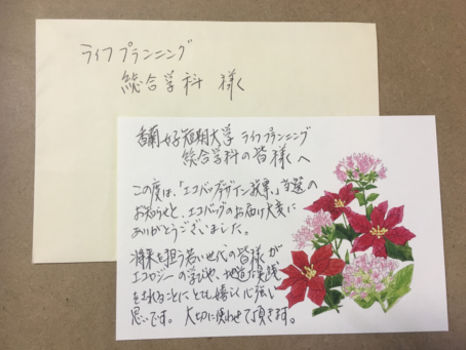 ライフプランニング
総合学科 様く
香蘭女子短期大学 ライフプランニング
総合学科の皆様へ
この度は、「エコバッグデザイン投票」当選の
お知らせと、エコバッグのお届け大変に
ありがとうございました。
将来を担う若い世代の皆様が
エコロジーの学びや、地道な実践
をされることにとても嬉しく心強い
思いです。大切に使わせて頂きます。